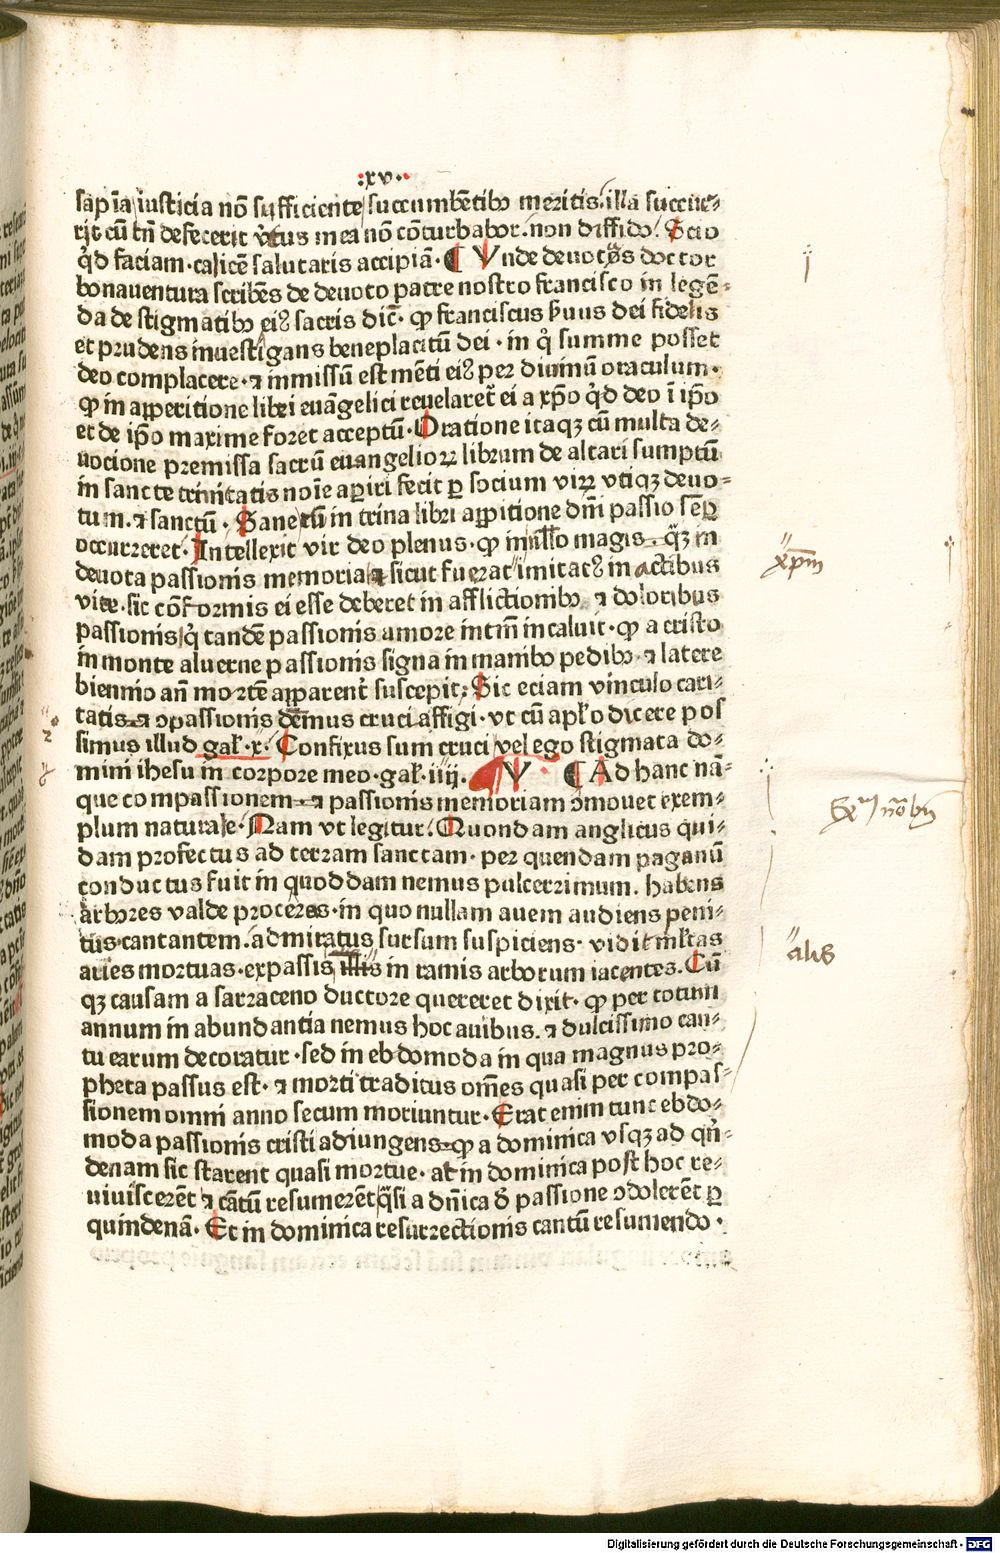 :xv··
sapīa iusticia nō sufficiente succumbētibꝰ meritis. illa succur⸗
rit cū tn̄ defecerit v̓tus mea nō cōturbabor. non diffido. Scio
qd̓ faciam·calicē salutaris accipiā· ¶ Vnde deuotꝰ doctor
bonauentura scribēs de deuoto patre nostro francisco in legē⸗
da de stigmatibꝰ eiꝰ sacris dic̄· ꝙ franciscus ẜuus dei fidelis
et prudens inuestigans beneplacitū dei · in q̓ summe posset
deo complacere·⁊ immissū est mēti eiꝰ per diuinū oraculum·
ꝙ in apperitione libri euāgelici reuelaret̓ ei a xp̄o qd̓ deo ī ip̄o
et de ip̄o maxime foret acceptū·Oratione itaqꝫ cū multa de⸗
uocione premissa sacrū euangelioꝝ librum de altari sumptū
in sancte trinitatis noīe aꝑiri fecit ꝑ socium viꝝ vtiqꝫ deuo⸗
tum.⁊ sanctū· Sane cū in trina libri apꝑitione dn̄i passio semꝑ
occurreret· Intellexit vir deo plenus·ꝙ magis qꝫ in
xp̄m
deuota passionis memoria ⁊ sicut fuerat imitatꝰ in actibus
vite·sic cōformis ei esse deberet in afflictionibꝰ ⁊ doloribus
passionis q̓ tandē passionis amore intm̄ incaluit·ꝙ a cristo
in monte aluerne passionis signa in manibꝰ pedibꝰ·⁊ latere
biennio an̄ mortē apparent̓ suscepit; Sic eciam vinculo cari⸗
tatis ⁊ ꝯpassionis dēmus cruci affigi·vt cū apl̓o dicere pos
simus illud gal̓·x· Confixus sum cruci vel ego stigmata do⸗
mini ihesu in corpore meo·gal̓·iiij. V ¶ Ad hanc nā⸗
que compassionem ⁊ passionis memoriam ꝯmouet exem⸗
plum naturale·Nam vt legitur. Quondam anglicus qui⸗
dam profectus ad terram sanctam· per quendam paganū
conductus fuit in quoddam nemus pulcerrimum. habens
arbores valde proceras·in quo nullam auem audiens peni⸗
tus cantantem. admiratus sursum suspiciens· vidit ml̓tas
alis
aues mortuas·expassis illis in ramis arborum iacentes. Cū
qꝫ causam a sarraceno ductore quereret dixit· ꝙ per totum
annum in abundantia nemus hoc auibus.⁊ dulcissimo can⸗
tu earum decoratur·sed in ebdomoda in qua magnus pro⸗
pheta passus est·⁊ morti traditus om̄es quasi per compas⸗
sionem omni anno secum moriuntur·Erat enim tunc ebdo⸗
moda passionis cristi adiungens ꝙ a dominica vsqꝫ ad qn̓⸗
denam sic starent quasi mortue· at in dominica post hoc re⸗
uiuiscerēt ⁊ cātū resumerēt q̄si a dn̄ica d̓ passione ꝯdolerēt ꝑ
quindenā· Et in dominica resurrectionis cantū resumendo·
Digitalisierung gefördert durch die Deutsche Forschungsgemeinschaft - DFG